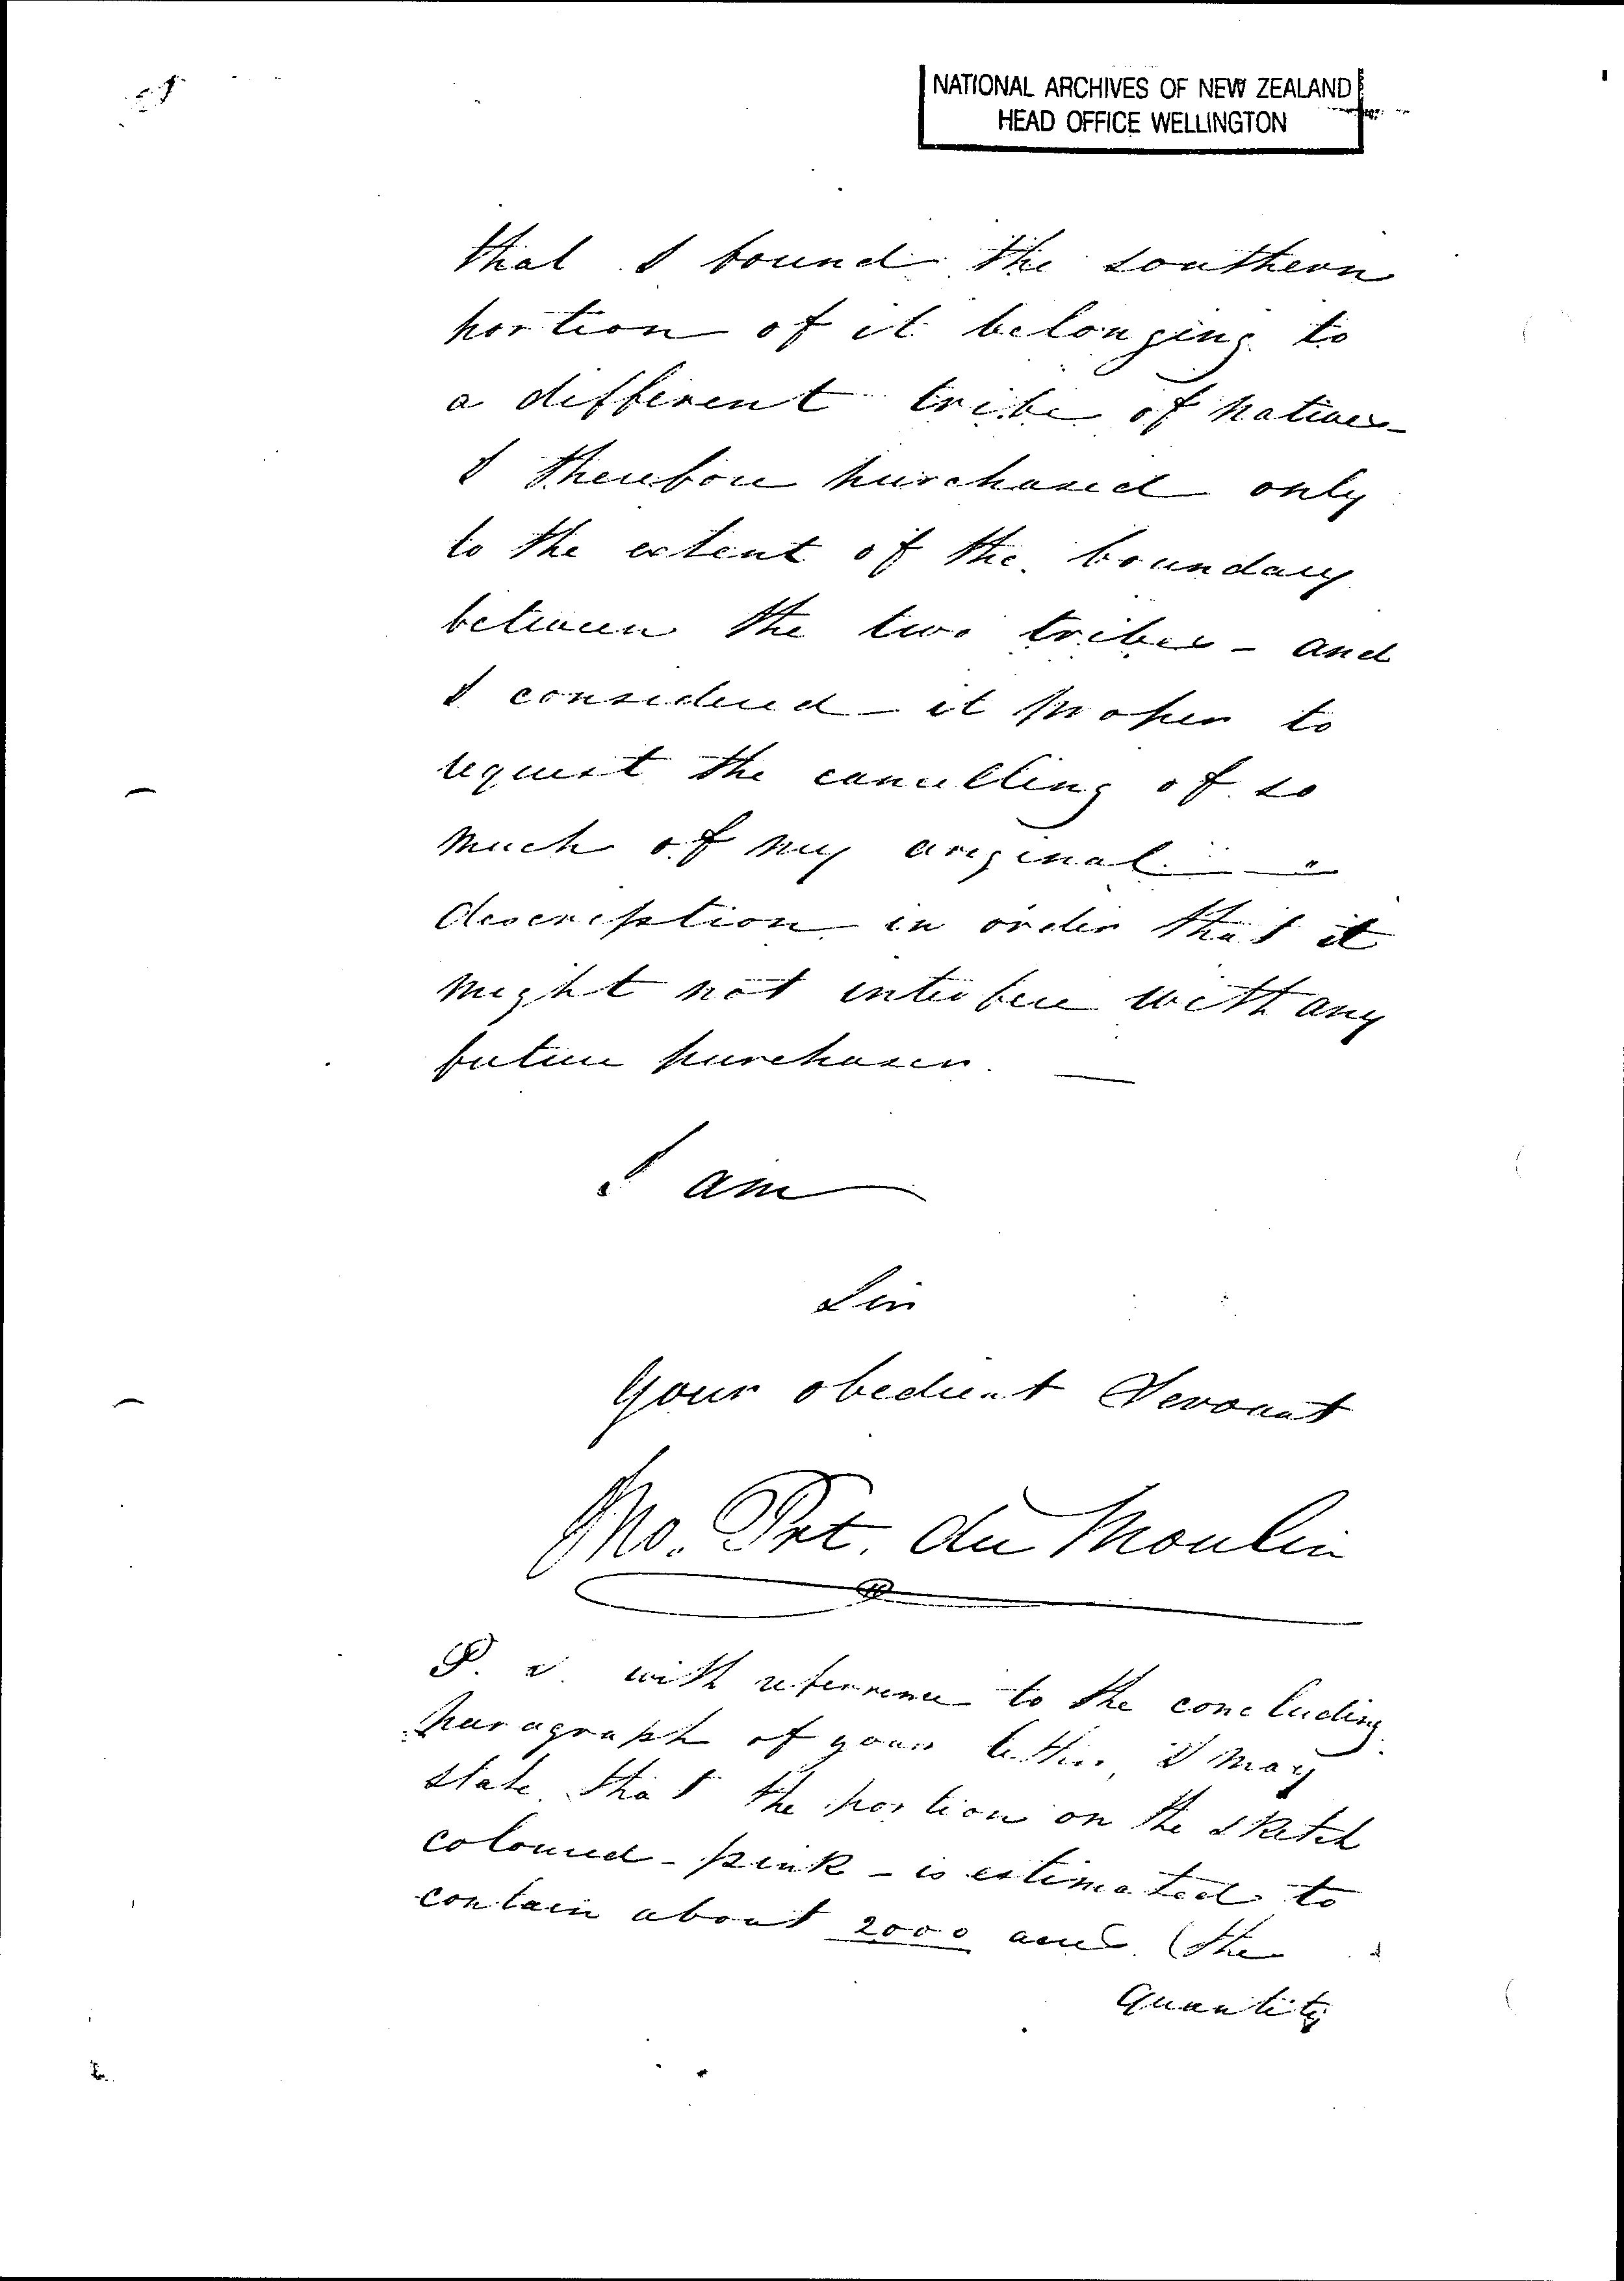 NATIONAL ARCHIVES OF NEW ZEALAND
HEAD OFFICE WELLINGTON
that I found the southern
portion of it belonging to
a different tribe of natives –
I therefore purchased only
to the extent of the boundary
between the two tribes – and
I considered – it proper to
request the cancelling of so
much of my original — "
description in order that it
might not interfere with any
future purchaser. —
I am
Sir
Your obedient Servant
Jno. Prt. du Moulin
P. S. with reference to the concluding
paragraph of your letter, I may
state that the portion on the sketch
coloured – pink – is estimated to
contain about 2000 acres. (the
quantity